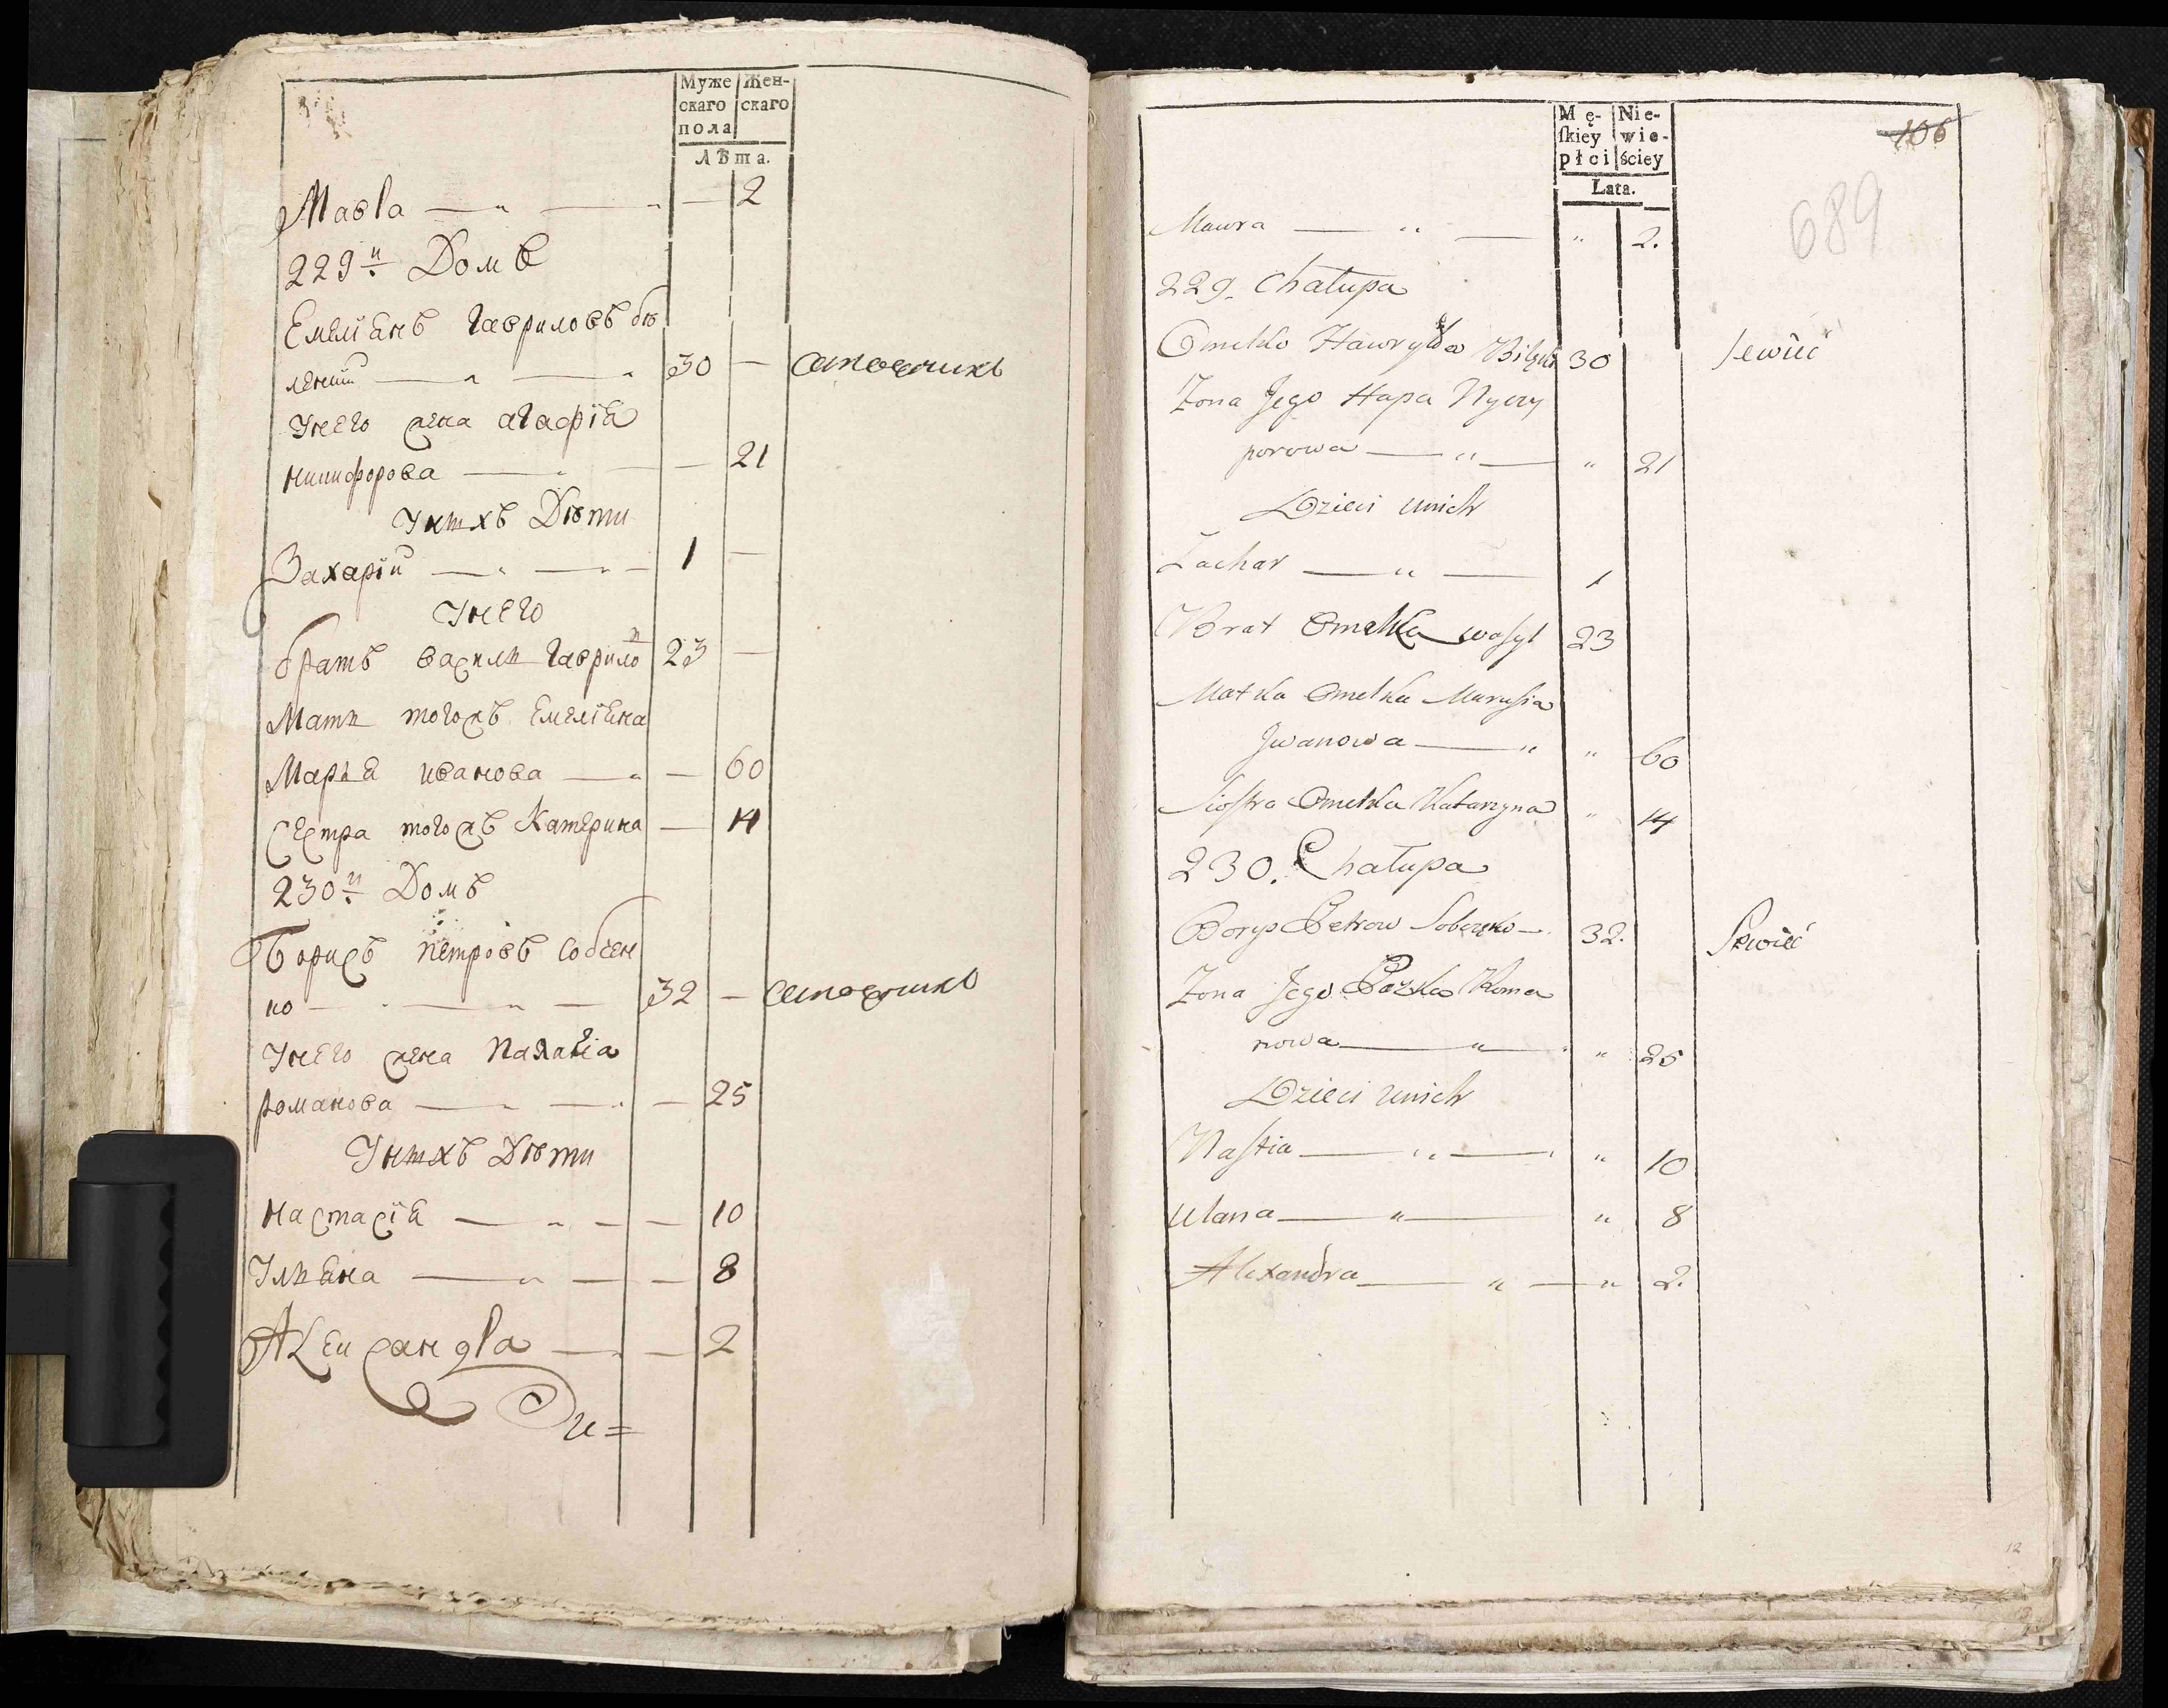 Муже Жен-
скаго скаго
пола
Лѣта.
Мавра — 2
229й Домъ
Емелїанъ Гавриловъ бѣ
ленкий 30 — сапожникъ
Унего жена агафїя
никифорова — 21
Унихъ Дѣти
Захарїй 1 —
Унего
братъ василй Гаврило 23 —
Мати тогожъ Емелїяна
Марья иванова — 60
Сестра тогожъ Катерина — 14
230й Домъ
Борисъ петровъ собчен
ко 32 — сапожникъ
Унего жена Палагїа
романова — 25
Унихъ Дѣти
Настасїя — 10
Улияна — 8
Александра — 2
Mę- Nie-
ſkiey wie-
płci ściey
Lata.
106
689
Mawra — „ — „ 2.
229. Chałupa
Omelko Hawryłow 30 Szewiec
Zona Jego Hapa Nyczy
porowa — „ — „ 21
Dzieci unich
Zachar — „ — 1
Brat Omelka waſyl 23
Matka Omelka Maruſia
Jwanowa — „ „ 60
Sioſtra Omelka Katarzyna „ 14
230. Chałupa
Borys Petrow Sobczenko — 32. Szwiec
Zona Jego Pazka Roma
nowa — „ „ 25
Dzieci unich
Naſtia — „ — „ 10
Ulana — „ — „ 8
Alexandra — „ — „ 2.
12